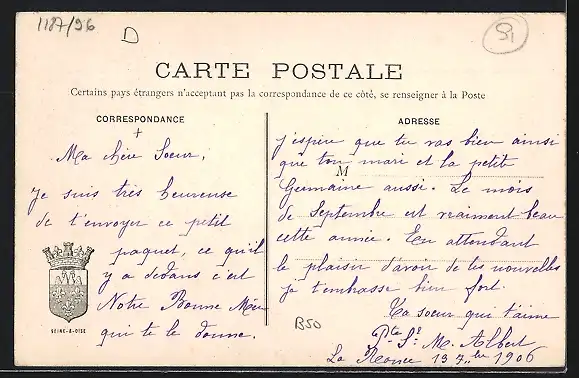 1187/96
D
91
CARTE POSTALE
Certains pays étrangers n'acceptant pas la correspondance de ce côté, se renseigner à la Poste
CORRESPONDANCE
+
Ma chère Soeur,
Je suis très heureuse
de t'envoyer ce petit
paquet, ce qu'il
y a dedans c'est
Notre Bonne Mère
qui te le donne.
SEINE-&-OISE
ADRESSE
j'espère que tu vas bien ainsi
que ton mari et la petite
M
Germaine aussi. Le mois
de Septembre est vraiment beau
cette année. En attendant
le plaisir d'avoir de tes nouvelles
je t'embrasse bien fort.
Ta soeur qui t'aime
Sr M. Albert
La 13 7bre 1906
B50